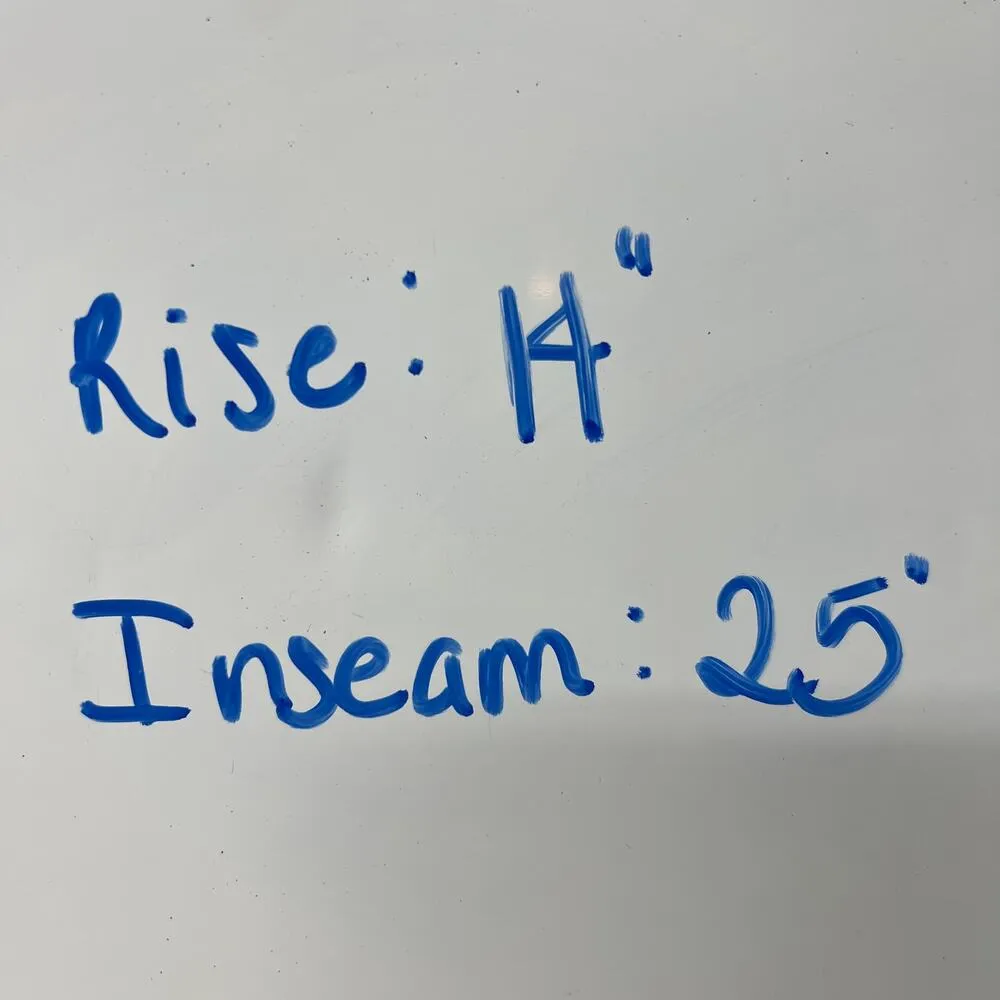 Rise: 14"
Inseam: 25"